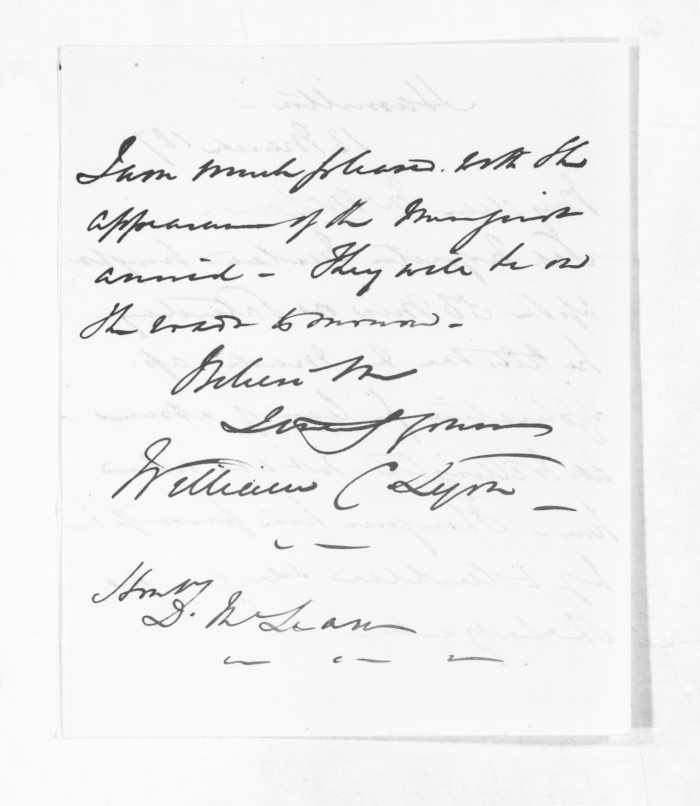 I am much pleased with the
appearance of the Men first
arrived - They will be on
the road tomorrow -
Believe Me
Yours
William C Lyon -
Honble
D. McLean